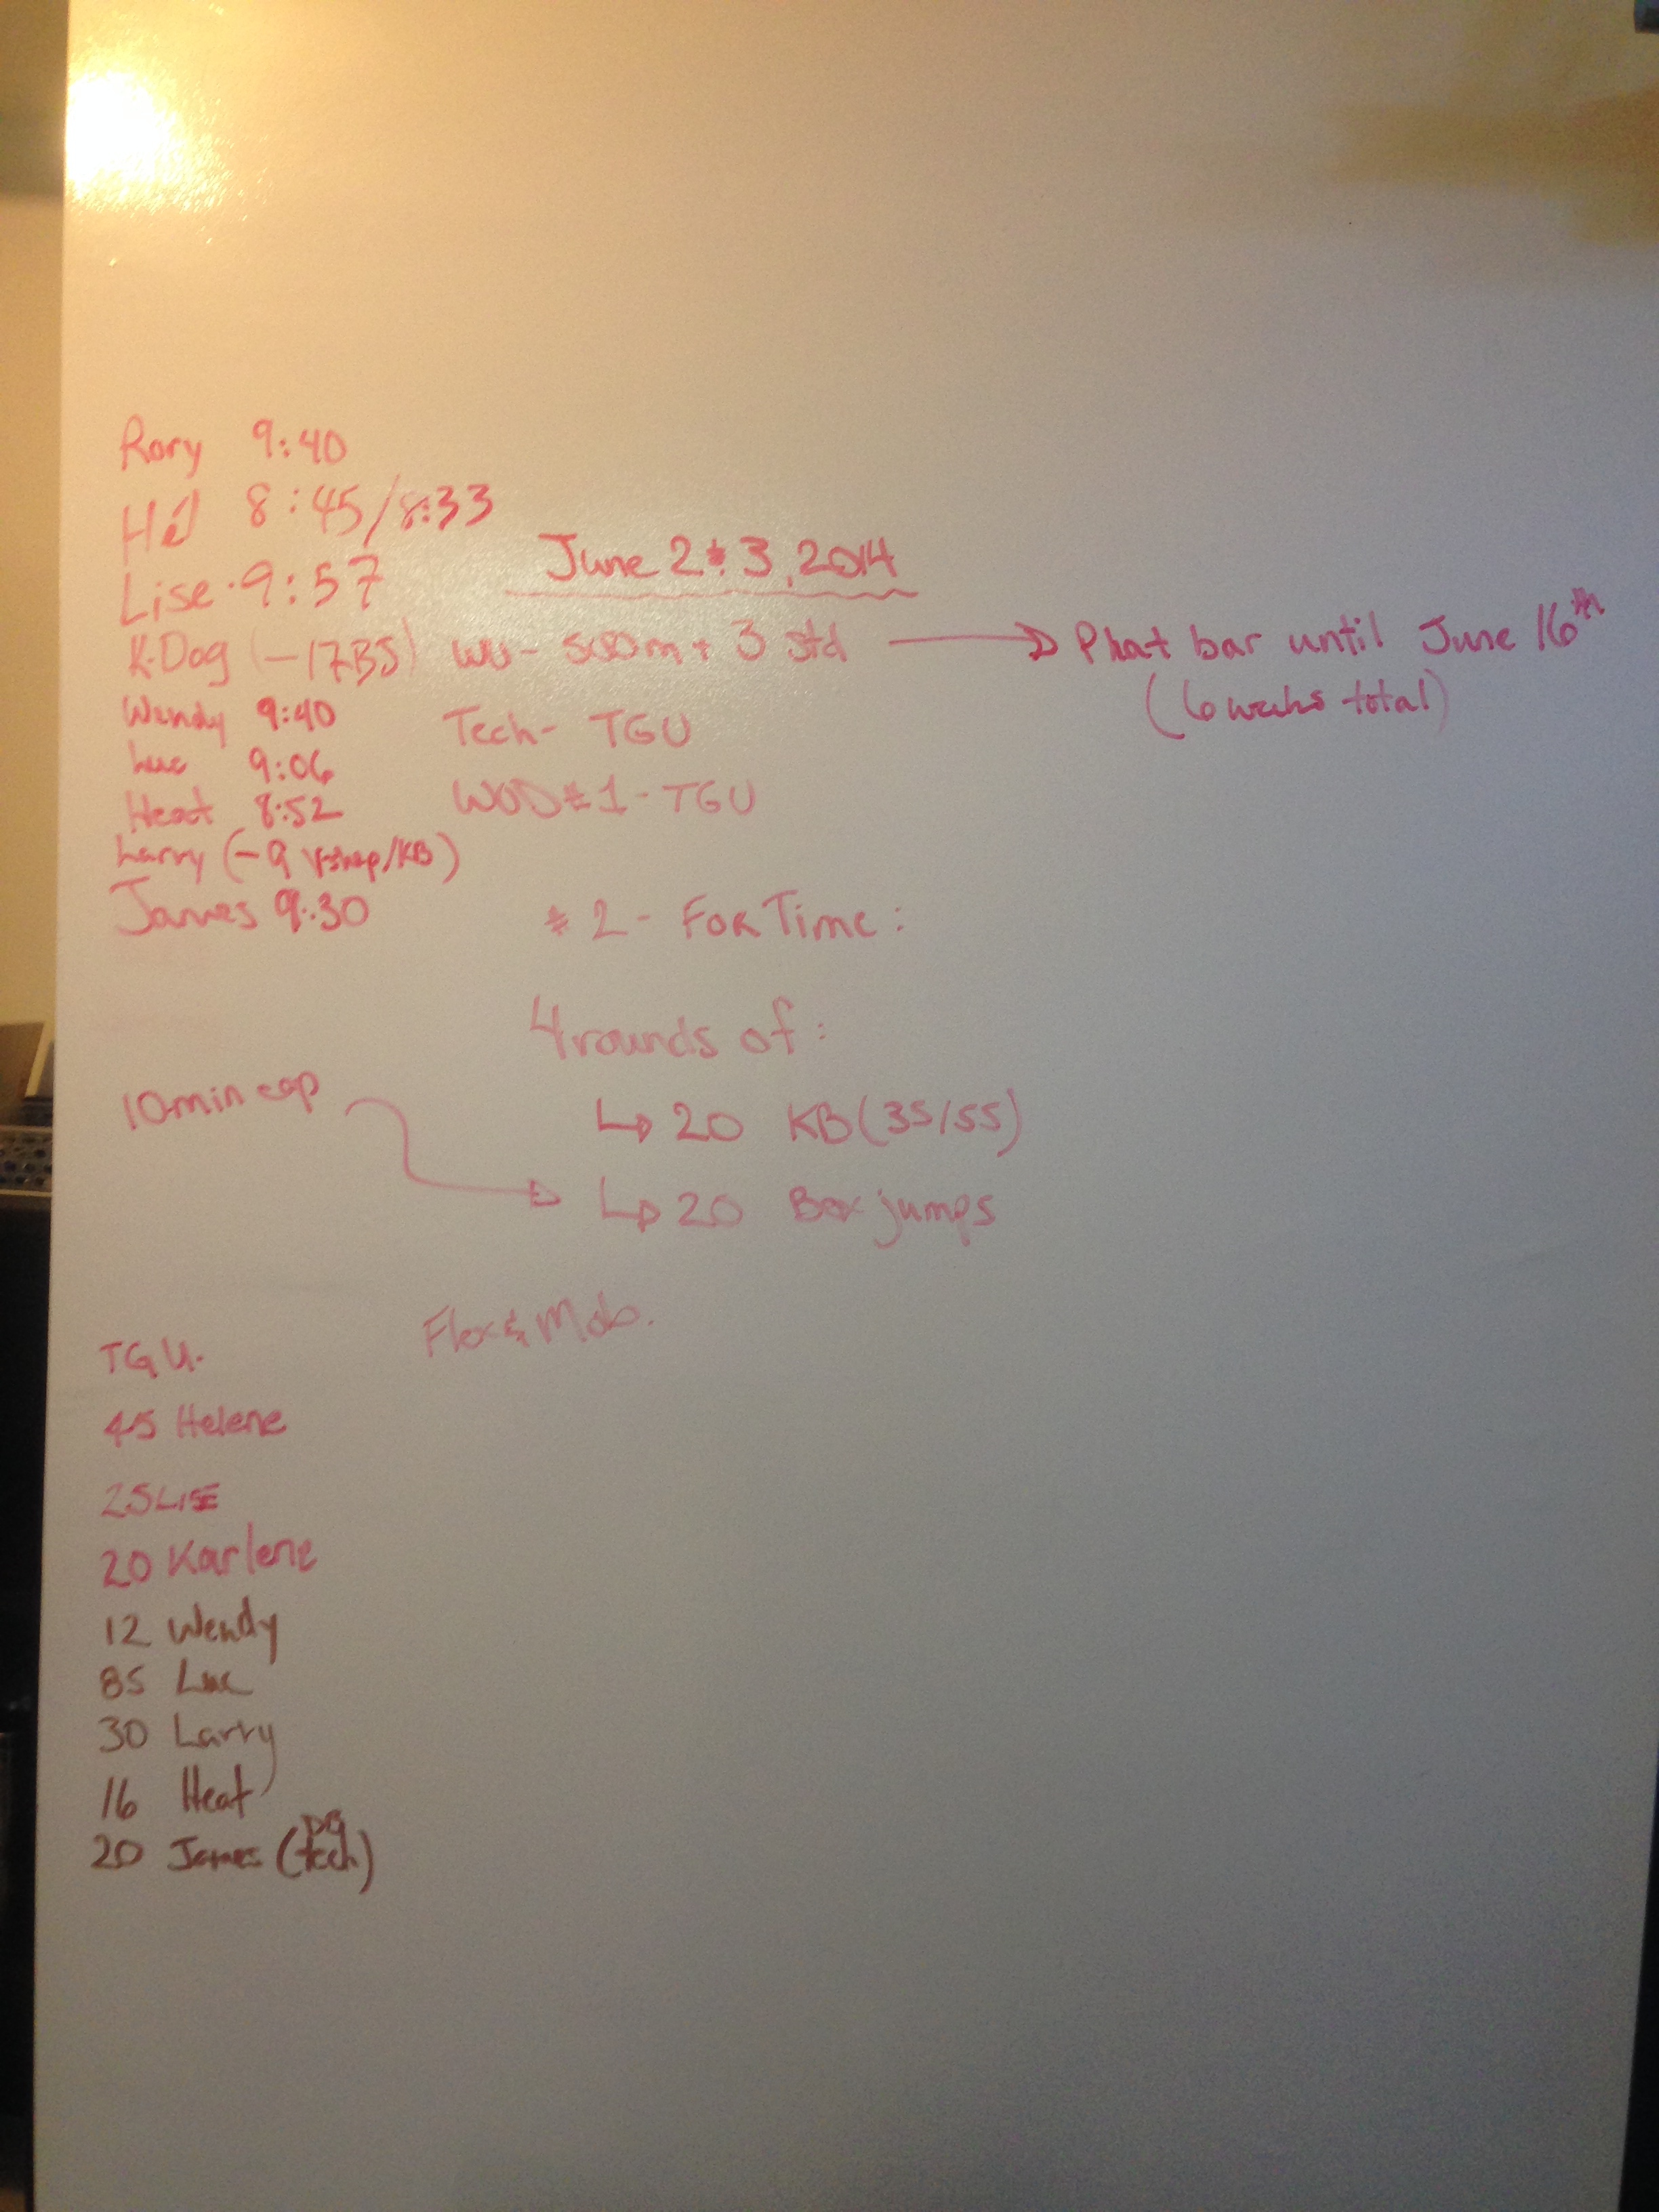 Rory 9:40
Hél 8:45/8:33
Lise 9:57
K-Dog (-17BJ)
Wendy 9:40
Luc 9:06
Heat 8:52
Larry (-9 /KB)
James 9:30
June 2 & 3, 2014
WU - 500m + 3 std → Phat bar until June 16th
(6 weeks total)
Tech - TGU
WOD #1 - TGU
#2 - For Time:
4 rounds of:
10 min cap
↳ 20 KB (35/55)
↳ 20 Box jumps
Flex & Mob.
TGU.
45 Helene
25 LISE
20 Karlene
12 Wendy
85 Luc
30 Larry
16 Heat
20 James (DB tech)